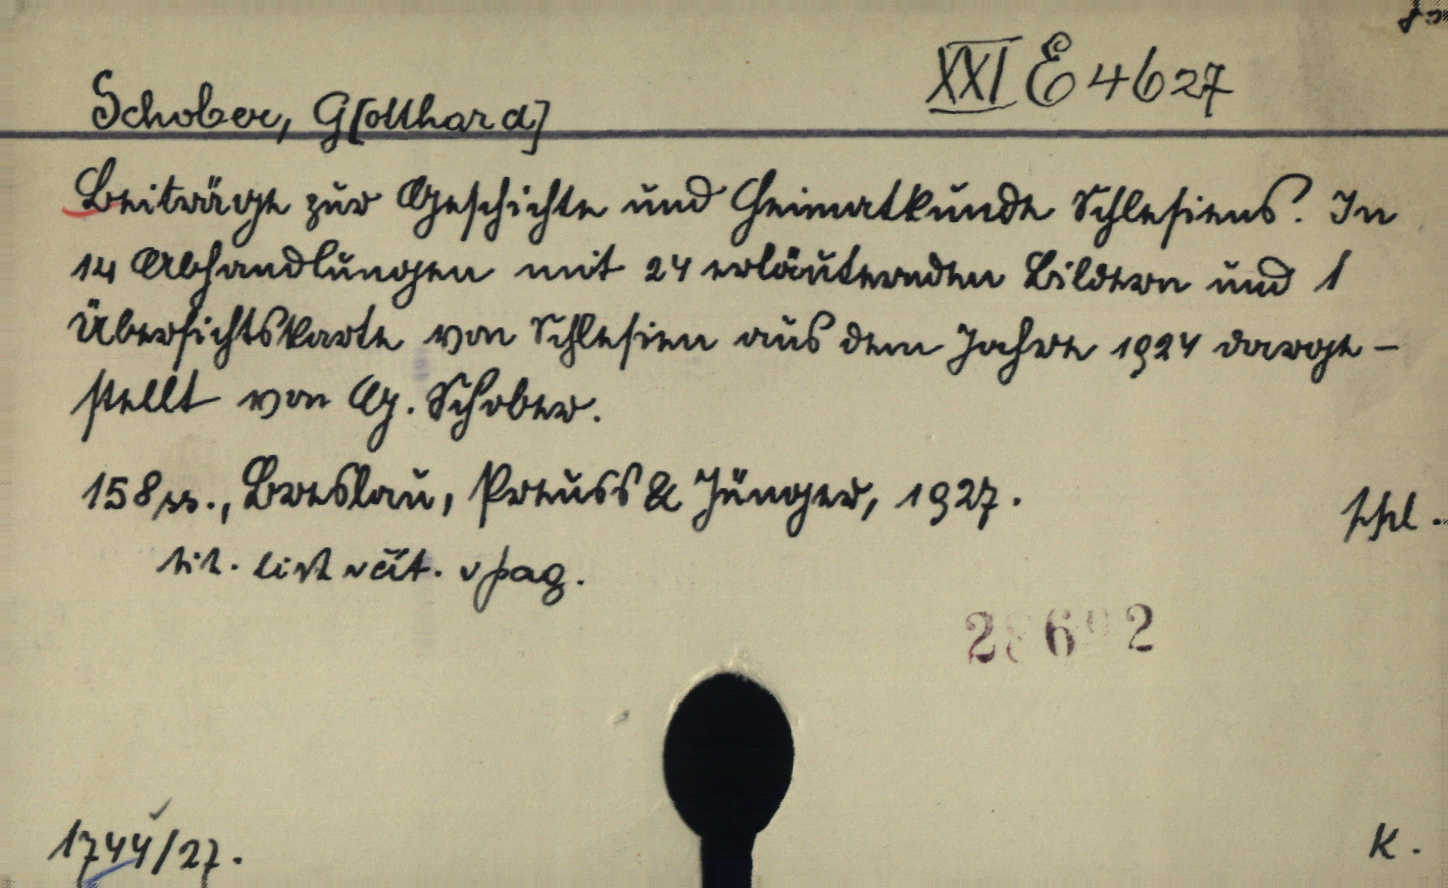 XXI E 4627
Schober, G[otthard]
Beiträge zur Geschichte und Heimatkunde Schlesiens. In
14 Abhandlungen mit 24 erläuternden Bildern und 1
Übersichtskarte von Schlesien aus dem Jahre 1924 darge-
stellt von G. Schober.
158 ss., Breslau, Preuss & Jünger, 1927.
tit. list vpag.
1744/27.
K.